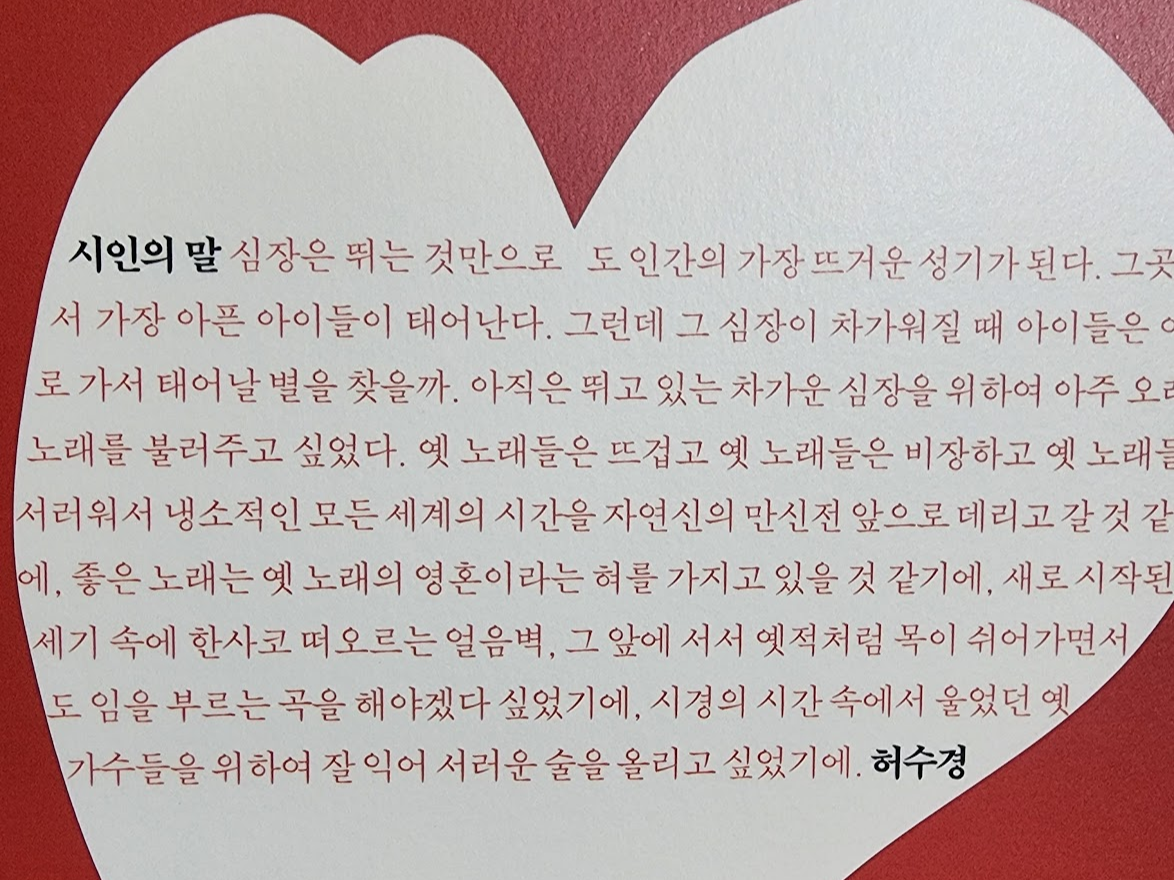 시인의 말 심장은 뛰는 것만으로 도 인간의 가장 뜨거운 성기가 된다. 그곳
서 가장 아픈 아이들이 태어난다. 그런데 그 심장이 차가워질 때 아이들은
로 가서 태어날 별을 찾을까. 아직은 뛰고 있는 차가운 심장을 위하여 아주
노래를 불러주고 싶었다. 옛 노래들은 뜨겁고 옛 노래들은 비장하고 옛
서러워서 냉소적인 모든 세계의 시간을 자연신의 만신전 앞으로 데리고 갈 것 같
에, 좋은 노래는 옛 노래의 영혼이라는 혀를 가지고 있을 것 같기에, 새로 시작된
세기 속에 한사코 떠오르는 얼음벽, 그 앞에 서서 옛적처럼 목이 쉬어가면서
도 임을 부르는 곡을 해야겠다 싶었기에, 시경의 시간 속에서 울었던 옛
가수들을 위하여 잘 익어 서러운 술을 올리고 싶었기에. 허수경